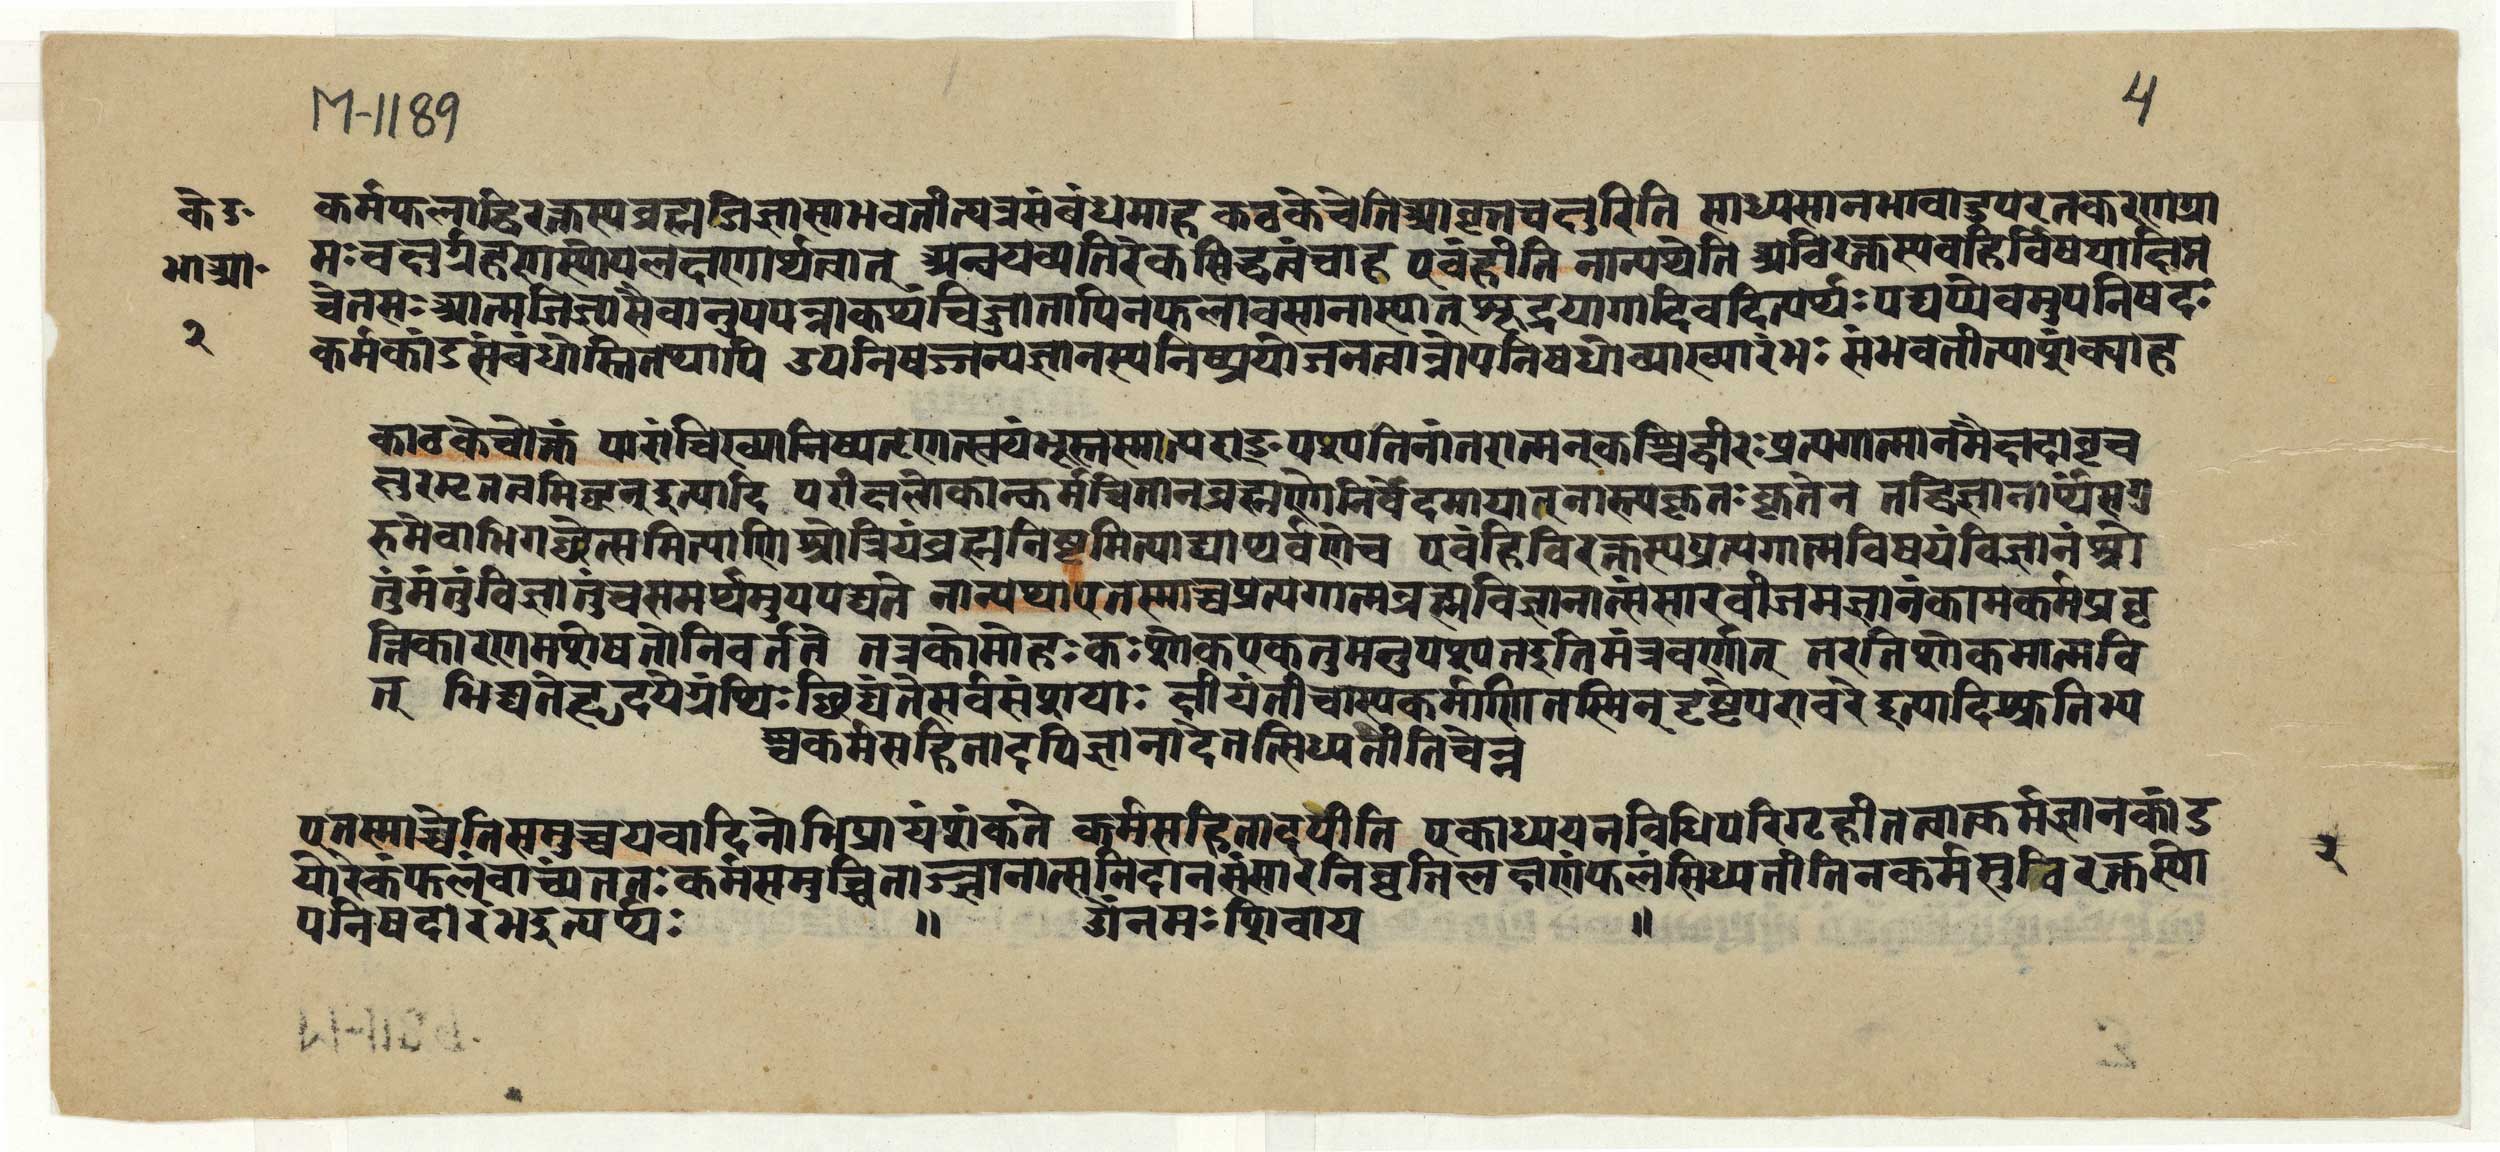 M-1189
4
के उ॰
भा आ॰
२
कर्मफलाद्विरक्तस्यब्रह्मजिज्ञासाभवतीत्यत्रसंबंधमाह कठकेचेतिआवृत्तचक्षुरिति साध्यसानभावादुपरतकरणग्रा
मः चक्षुर्ग्रहणस्योपलक्षणार्थत्वात् अन्वयव्यतिरेकसिद्धत्वंचाह एवंहीति नान्यथेति अविरक्तस्यबहिर्विषयाक्षिप्त
चेतसः आत्मजिज्ञासैवानुपपन्नाकथंचिज्जातापिनफलावसानास्यात् शूद्रयागादिवदित्यर्थः यद्यप्येवमुपनिषदः
कर्मकांडसंबंधोस्तितथापि उपनिषज्जन्यज्ञानस्यनिष्प्रयोजनत्वान्नोपनिषद्योव्याख्यारंभः संभवतीत्याशंक्याह
काठकेचोक्तं पारांचिखानिव्यतृणत्स्वयंभूस्तस्मात्पराङ्पश्यतिनांतरात्मन्कश्चिद्धीरः प्रत्यगात्मानमैक्षदावृच
क्षुरमृतत्वमिछन्इत्यादि परीक्ष्यलोकान्कर्मचितान्ब्रह्मणोनिर्वेदमायात्नास्त्यकृतः कृतेन तद्विज्ञानार्थंसगु
रुमेवाभिगछेत्समित्पाणिः श्रोत्रियंब्रह्मनिष्ठमित्याद्याथर्वणेच एवंहिविरक्तस्यप्रत्यगात्मविषयंविज्ञानंश्रो
तुंमंतुंविज्ञातुंचसमर्थमुपपद्यते नान्यथाएतस्माच्चप्रत्यगात्मब्रह्मविज्ञानात्संसारबीजमज्ञानंकामकर्मप्रवृ
त्तिकारणमशेषतोनिवर्तते तत्रकोमोहः कः शोकएकत्वमनुपश्यतइतिमंत्रवर्णात् तरतिशोकमात्मवि
त् भिद्यतेहृदयग्रंथिः छिद्यंतेसर्वसंशयाः क्षीयंतीचास्यकर्माणितस्मिन्दृष्टेपरावरे इत्यादिश्रुतिभ्य
श्चकर्मसहितादपिज्ञानादेतत्सिध्यतीतिचेन्न
एतस्माच्चेतिसमुच्चयवादिनोभिप्रायंशंकते कर्मसहितादपीति एकाध्ययनविधिपरिगृहीतत्वात्कर्मज्ञानकांड
योरेकंफलंवाच्यंततः कर्मसमुच्चिताज्ज्ञानात्सनिदानसंसारनिवृत्तिलक्षणंफलंसिध्यतीतिनकर्मसुविरक्तस्यो
पनिषदारभइत्यर्थः ॥ ॐनमः शिवाय ॥
२